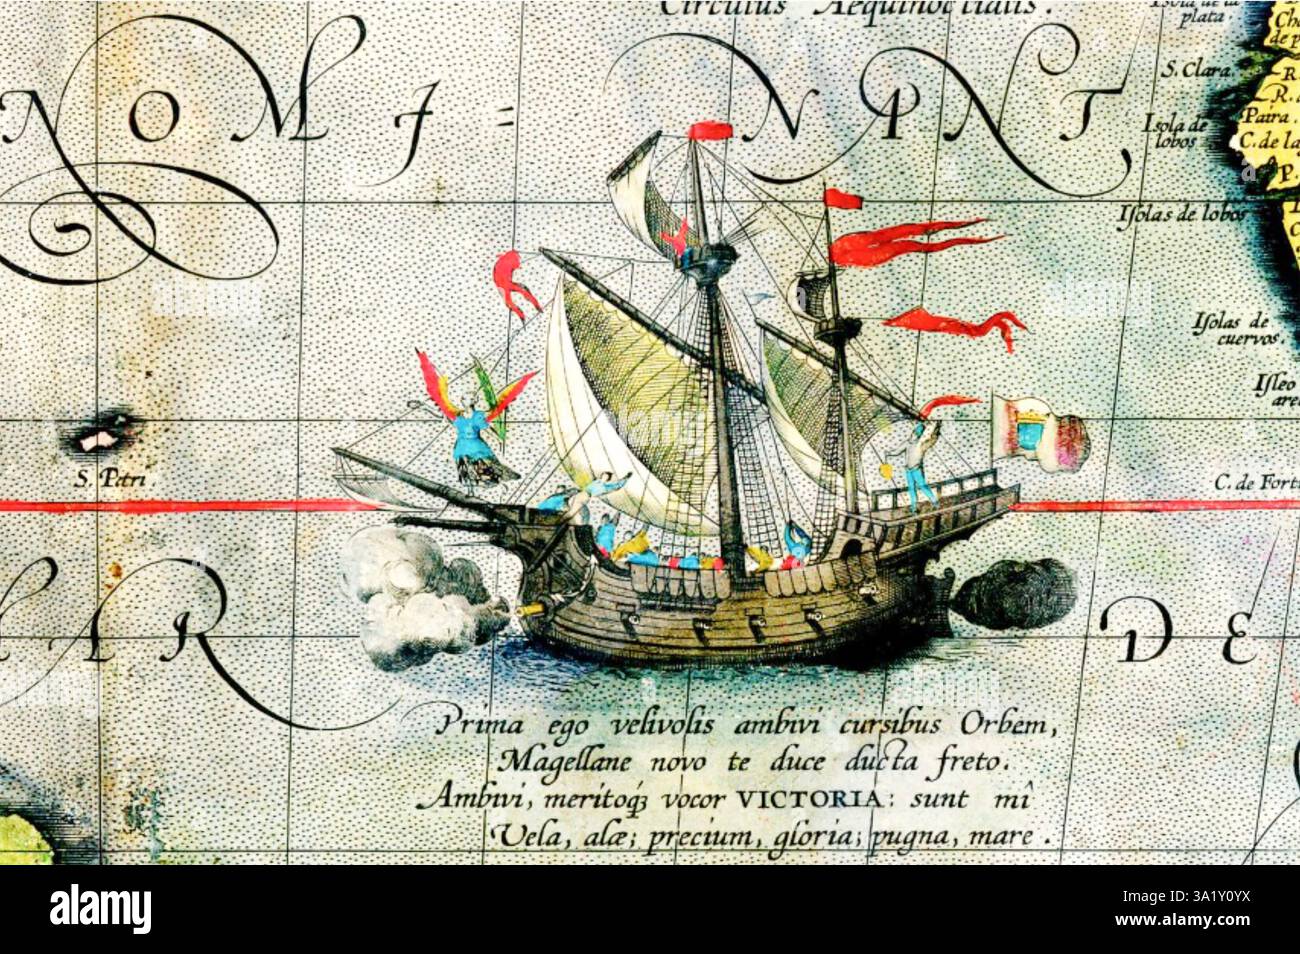 Circulus Aequinoctialis.
Isola de la
plata.
de p
S. Clara.
R.
R.
NOMI=
NANT,
Paira.
Isola de
lobos
C. de la
P.
Isolas de lobos
C
Isolas de
cuervos.
Isleo
are
S. Petri.
C. de Fort
AR
DE
Prima ego velivolis ambivi cursibus Orbem,
Magellane novo te duce ducta freto.
Ambivi, meritoqꝫ vocor VICTORIA: sunt mî
Vela, alæ; precium, gloria; pugna, mare.
alamy
Image ID: 3A1Y0YX
www.alamy.com